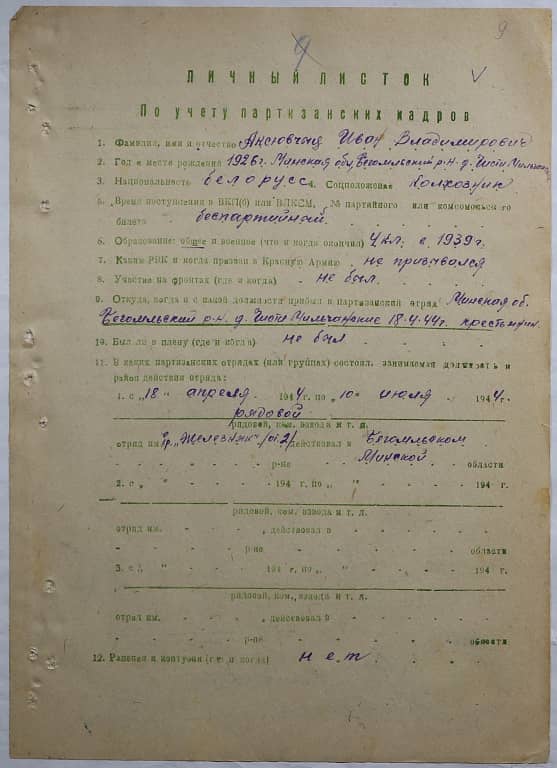 9
9
ЛИЧНЫЙ ЛИСТОК
По учету партизанских кадров
1. Фамилия, имя и отчество Аксючыц Иван Владимирович
2. Год и месте рождения 1926 г. Минская обл, Бегомльский р-н. д. Чисти
3. Национальность белорусс 4. Соцположение колхозник
5. Время поступления в ВКП(б) или ВЛКСМ, № партийного или комсомольского
билета беспартийный.
6. Образование: общее и военное (что и когда окончил) 4 кл. в 1939 г.
7. Каким РВК и когда призван в Красную Армию не призывался
8. Участие на фронтах (где и когда) не был.
9. Откуда, когда и с какой должности прибыл в партизанский отряд Минская об.
Бегомльский р-н. д. Чисти 18.4.44 г.
10. Был ли в плену (где и когда) не был
11. В каких партизанских отрядах (или группах) состоял, занимаемая должность и
район действия отряда:
1. с „18" апреля 1944 г. по „10" июля 1944 г.
рядовой
рядовой, ком. взвода и т. д.
отряд им бр. „Железняк" /от. 2/ действовал в Бегомльском
р-не Минской области
2. с „ " 194 г. по „ " 194 г.
рядовой, ком. взвода и т. д.
отряд им. , действовал в
р-не области
3. с „ " 194 г. по „ " 194 г.
рядовой, ком. взвода и т. д.
отряд им. , действовал в
р-не области
12. Ранения и контузии (где и когда) нет